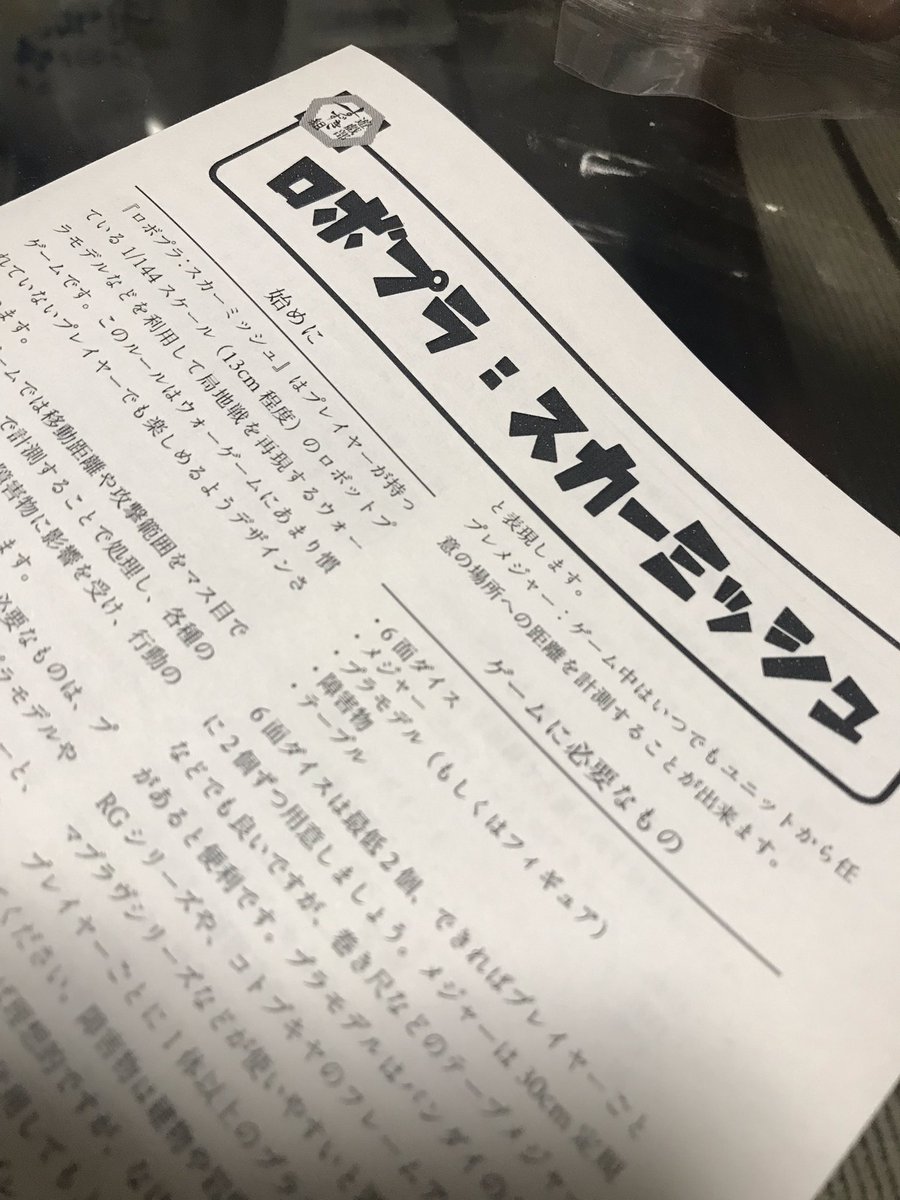 遊戯部
すずき組
ロボプラ：スカーミッシュ
始めに
『ロボプラ・スカーミッシュ』はプレイヤーが持つ
ている 1/144 スケール（13cm 程度）のロボットプ
ラモデルなどを利用して局地戦を再現するウォー
ゲームです。このルールはウォーゲームにあまり慣
れていないプレイヤーでも楽しめるようデザインさ
ます。
ームでは移動距離や攻撃範囲をマス目で
で計測することで処理し、各種の
障害物に影響を受け、行動の
ます。
必要なものは、プ
プラモデルや
ーと、
と表現します。
プレメジャー：ゲーム中はいつでもユニットから任
意の場所への距離を計測することが出来ます。
ゲームに必要なもの
・6 面ダイス
・メジャー
・プラモデル（もしくはフィギュア）
・障害物
・テーブル
6 面ダイスは最低 2 個、できればプレイヤーごと
に 2 個ずつ用意しましょう。メジャーは 30cm 定規
などでも良いですが、巻き尺などのテープメジャー
があると便利です。プラモデルはバンダイの
RG シリーズや、コトブキヤのフレームア
マブラヴシリーズなどが使いやすいと
プレイヤーごとに 1 体以上のプラ
ください。障害物は建物や
理想的ですが、な
しても